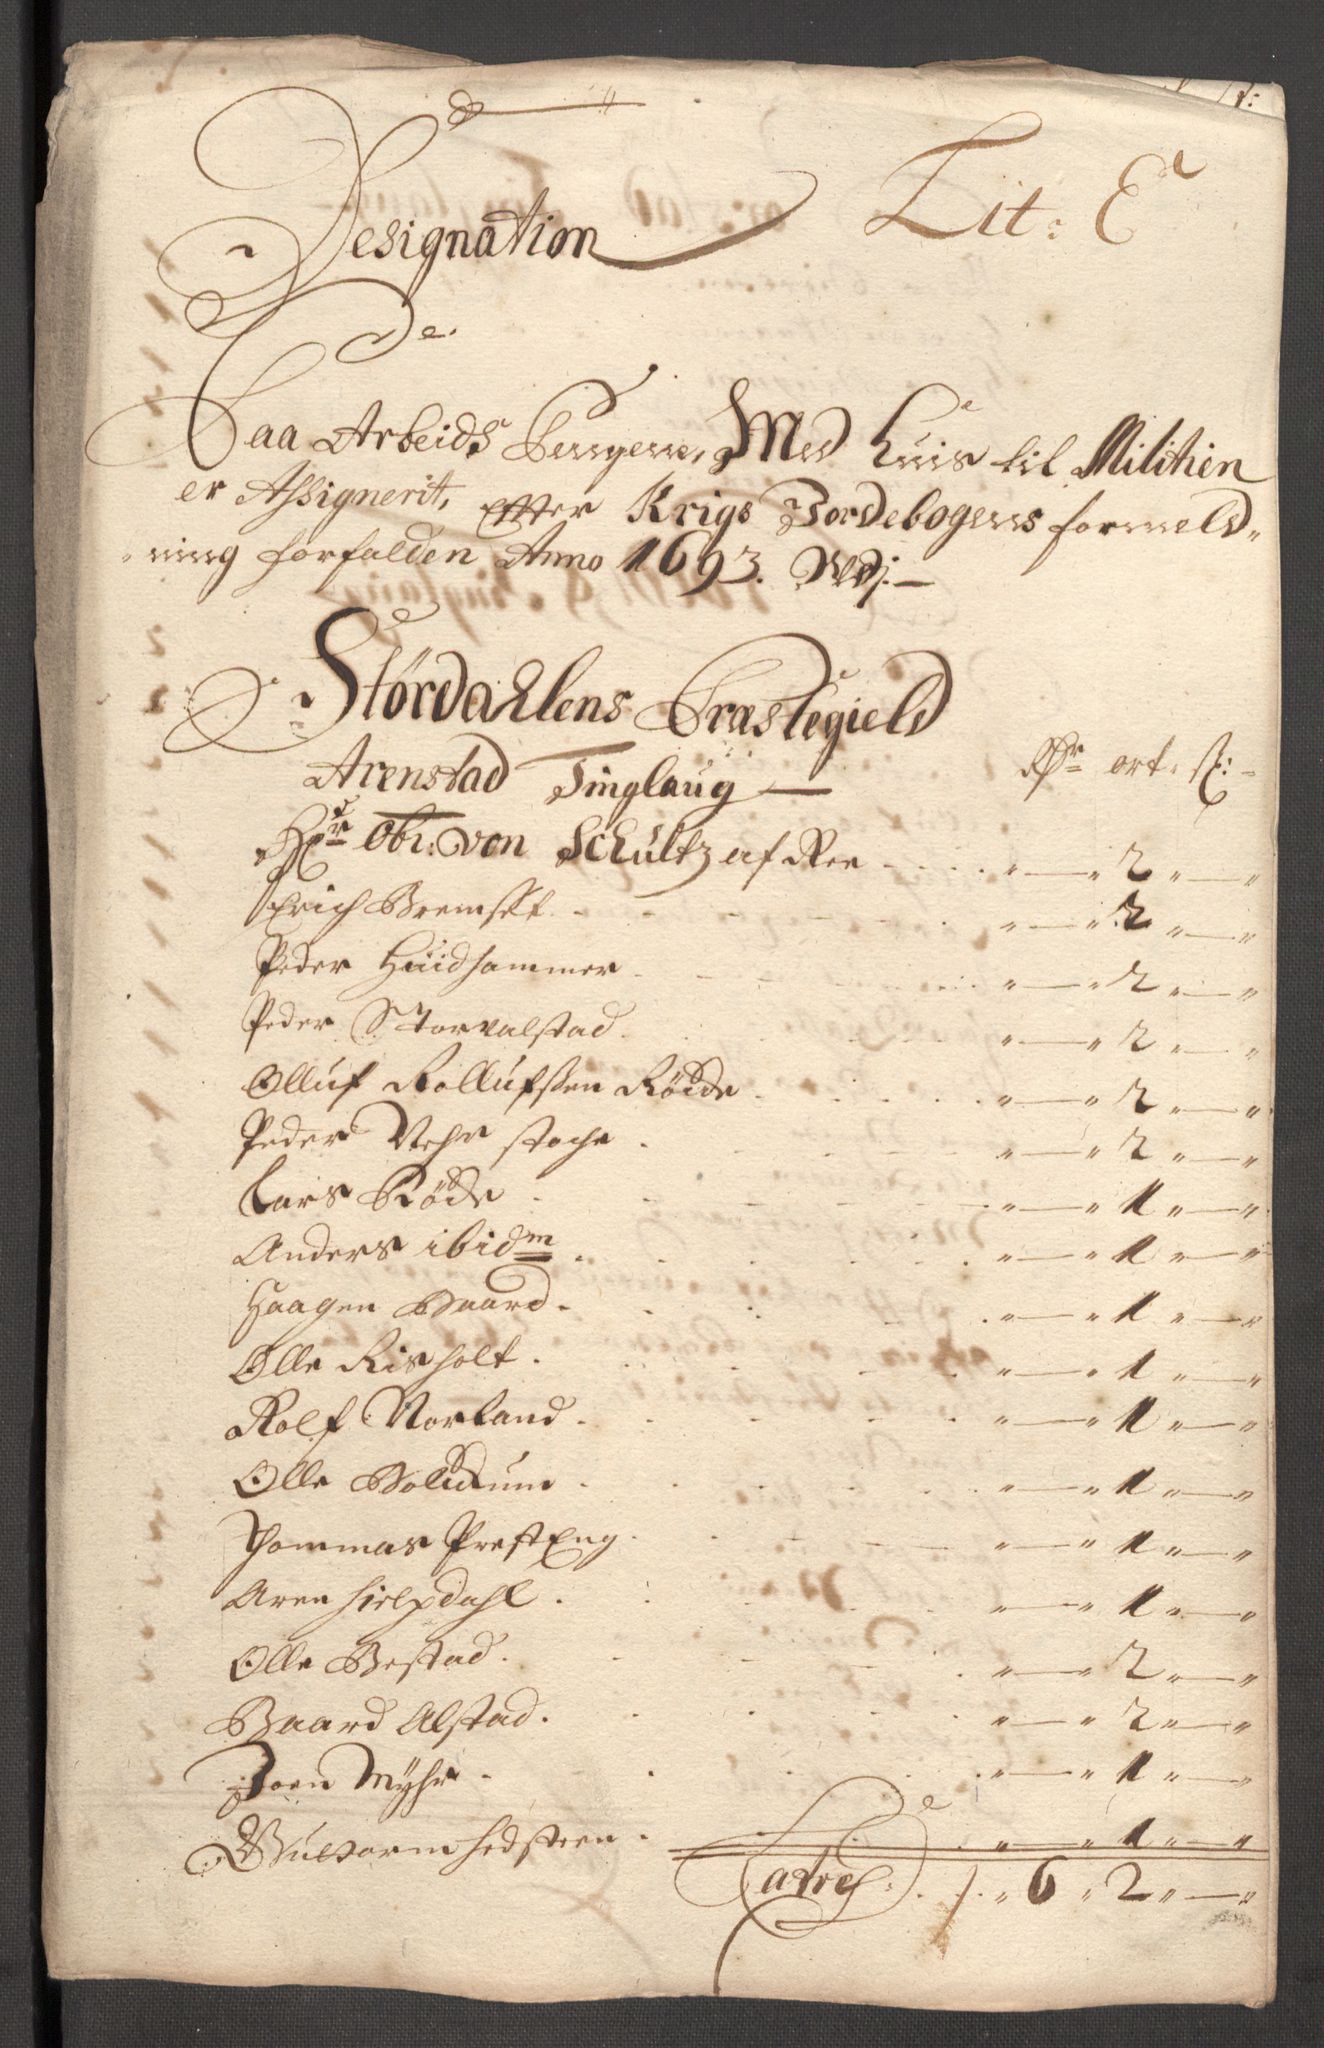 Lit: E
Designation
Paa Arbeids Pengene, Med huis til Militien
er Assignerit, Efter Krigs Jordebogens formeld-
ning forfalden Anno 1693. Nvj:
Størdahlens Præstegield
Arenstad Tinglaug — Rdr ort. s:
Hr Obr: von Schultz af Ree . . . " — " 2 " — "
Erich Bremset . " — " 2 " — "
Peder Huidhammer . " — " 2 " — "
Peder Storvalstad . " — " 2 " — "
Olluf Rollufssen Röde . " — " 2 " — "
Peder Vehr stoche . " — " 2 " — "
Lars Röde . " — " 1 " — "
Anders ibidm . " — " 1 " — "
Haagen Baard . " — " 1 " — "
Olle Risholt . " — " 1 " — "
Rolf Norland . " — " 1 " — "
Olle . " — " 1 " — "
Thommas PrestEng . " — " 1 " — "
Aren Hielpdahl . " — " 1 " — "
Olle Bestad . " — " 2 " — "
Baard Alstad . " — " 2 " — "
Joen Myhr . " — " 1 " — "
Guldorm Hedsteen . " — " 1 " — "
Latres: . " 6 " 2 " — "